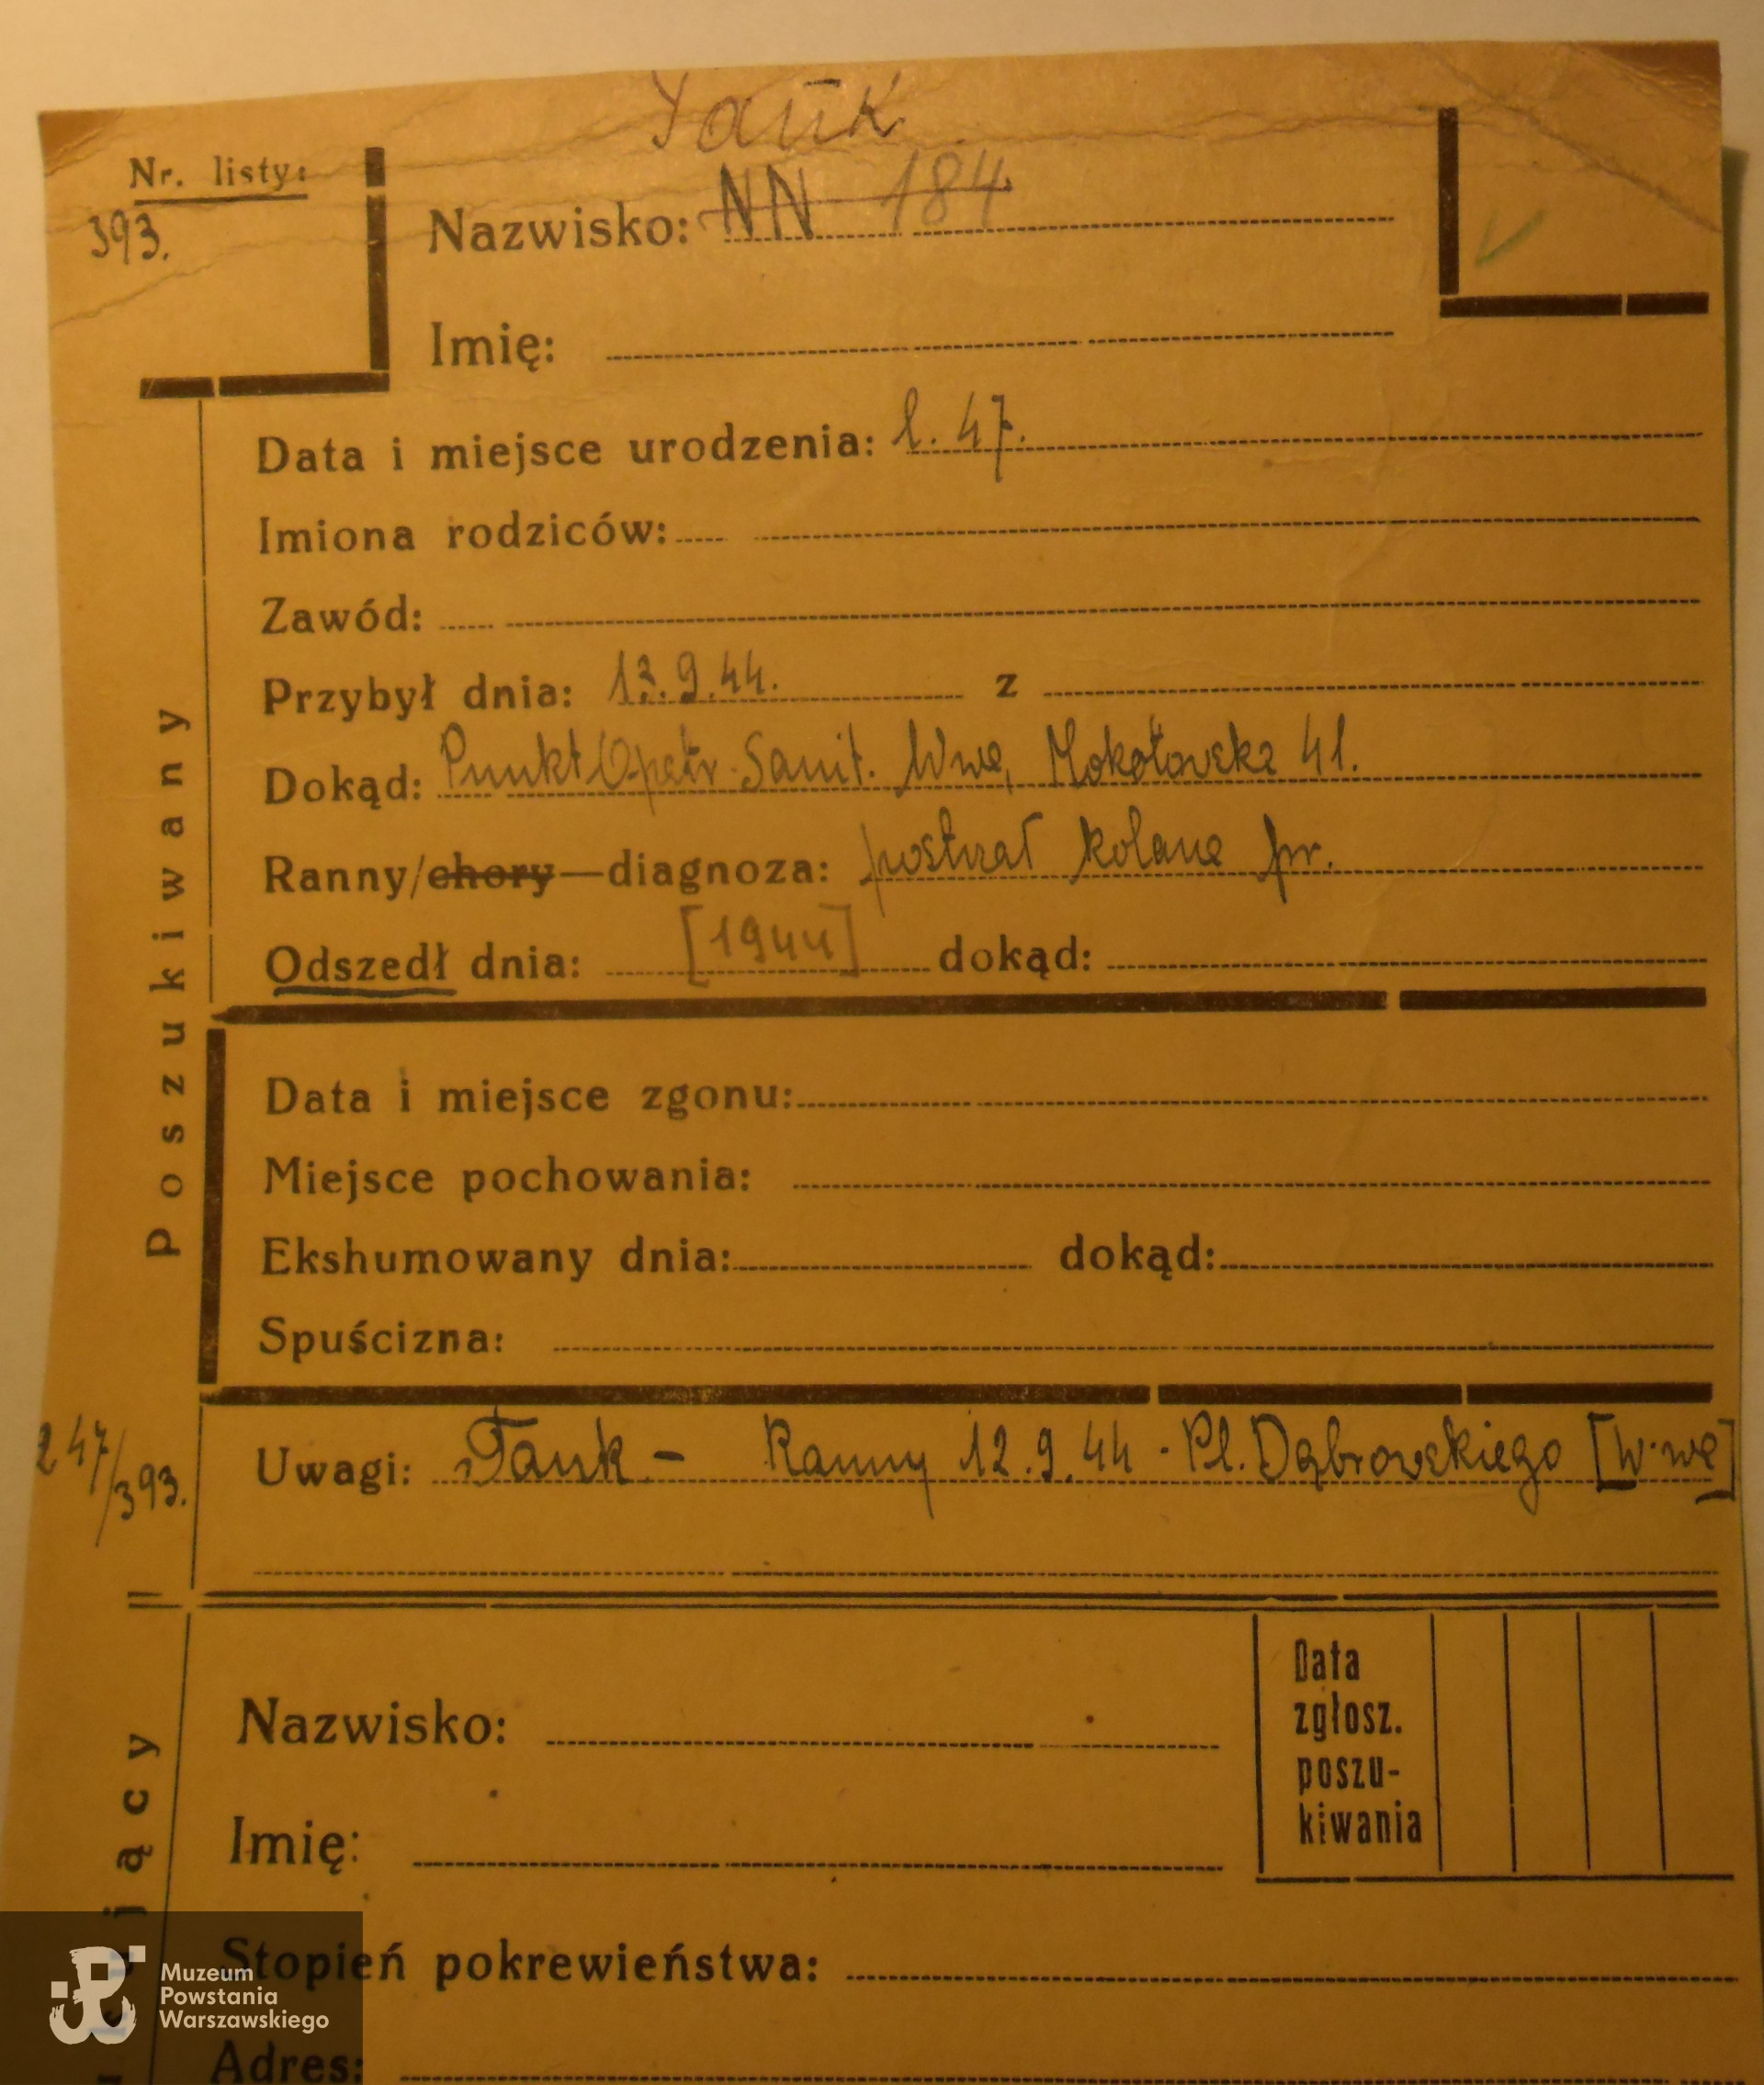 Nr. listy:
393.
Tauk
Nazwisko: NN 184.
Imię:
Data i miejsce urodzenia: l. 47.
Imiona rodziców:
Zawód:
Przybył dnia: 13.9.44. z
Dokąd: Punkt Opatr. Sanit. W-wa, Mokotowska 41.
Ranny/chory—diagnoza: postrzał kolana pr.
Odszedł dnia: [1944] dokąd:
Poszukiwany
Data i miejsce zgonu:
Miejsce pochowania:
Ekshumowany dnia: dokąd:
Spuścizna:
247/393.
Uwagi: Tauk - Ranny 12.9.44 - Pl. Dąbrowskiego [W-wa]
Nazwisko:
Data
zgłosz.
poszu-
kiwania
Imię:
Stopień pokrewieństwa:
Adres:
Muzeum
Powstania
Warszawskiego